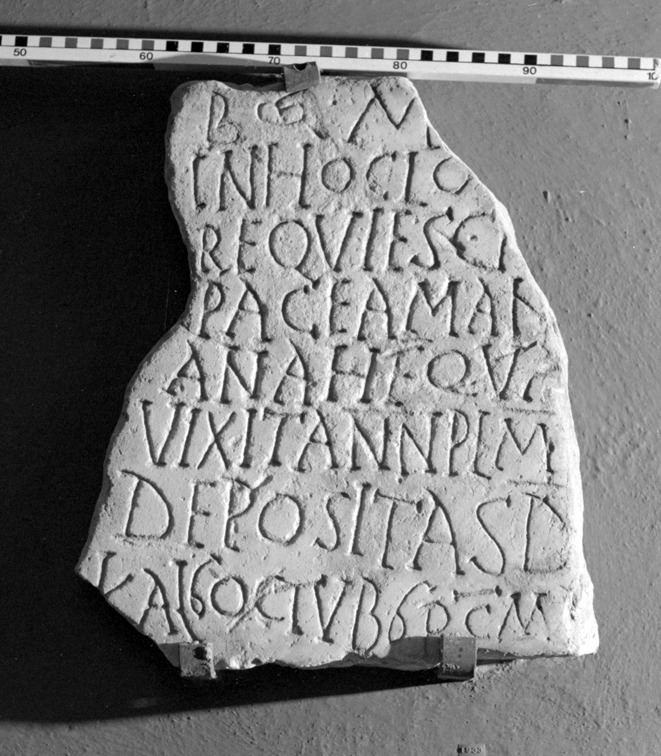 50 60 70 80 90 10
B M
INHOCLO
REQVIESCI
PACEAMAN
ANAHF QVI
VIXITANNPLM
DEPOSITASD
OCTVB